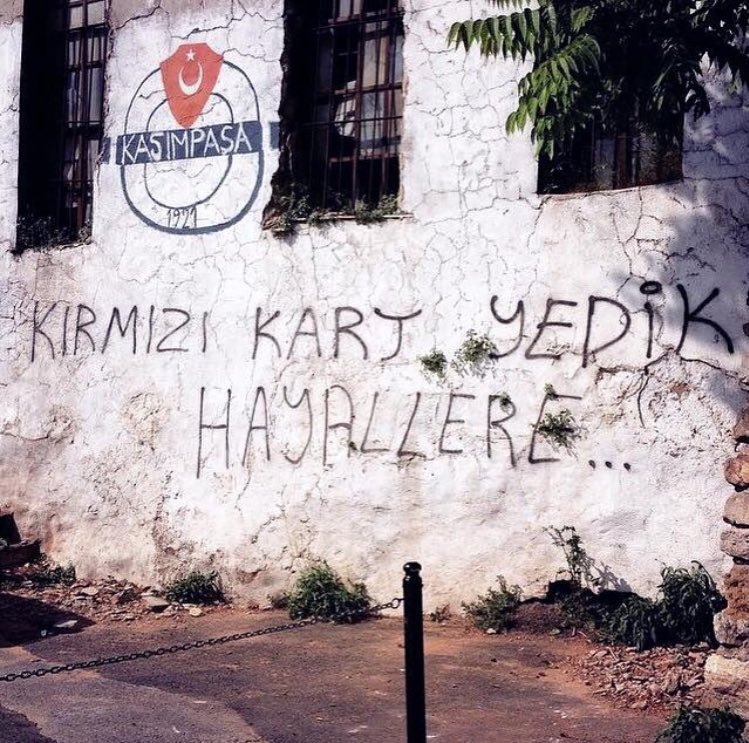 KASIMPAŞA
1921
KIRMIZI KART YEDİK
HAYALLERE...